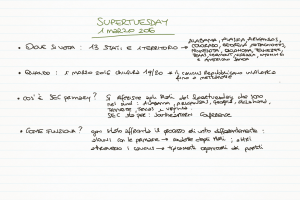 SUPERTUESDAY
1 MARZO 2016
• DOVE SI VOTA: 13 STATI E 1 TERRITORIO → ALABAMA, ALASKA, ARKANSAS,
COLORADO, GEORGIA, MASSACHUSETTS,
MINNESOTA, OKLAHOMA, TENNESSEE,
TEXAS, VERMONT, VIRGINIA, WYOMING
E AMERICAN SAMOA
• QUANDO: 1 MARZO 2016
CAUCUS REPUBBLICANO
FINO A MEZZANOTTE
• COS'È SEC PRIMARY? SI RIFERISCE AGLI STATI DEL SUPERTUESDAY CHE SONO
NEL SUD: ALABAMA, ARKANSAS, GEORGIA, OKLAHOMA,
TENNESSEE, TEXAS E VIRGINIA
SEC STA PER: SOUTHEASTERN CONFERENCE
• COME FUNZIONA? OGNI STATO AFFRONTA IL PROCESSO DI VOTO DIFFERENTEMENTE:
ALCUNI CON LE PRIMARIE → GESTITE DAGLI STATI; ALTRI
ATTRAVERSO I CAUCUS → TIPICAMENTE ORGANIZZATI DAI PARTITI